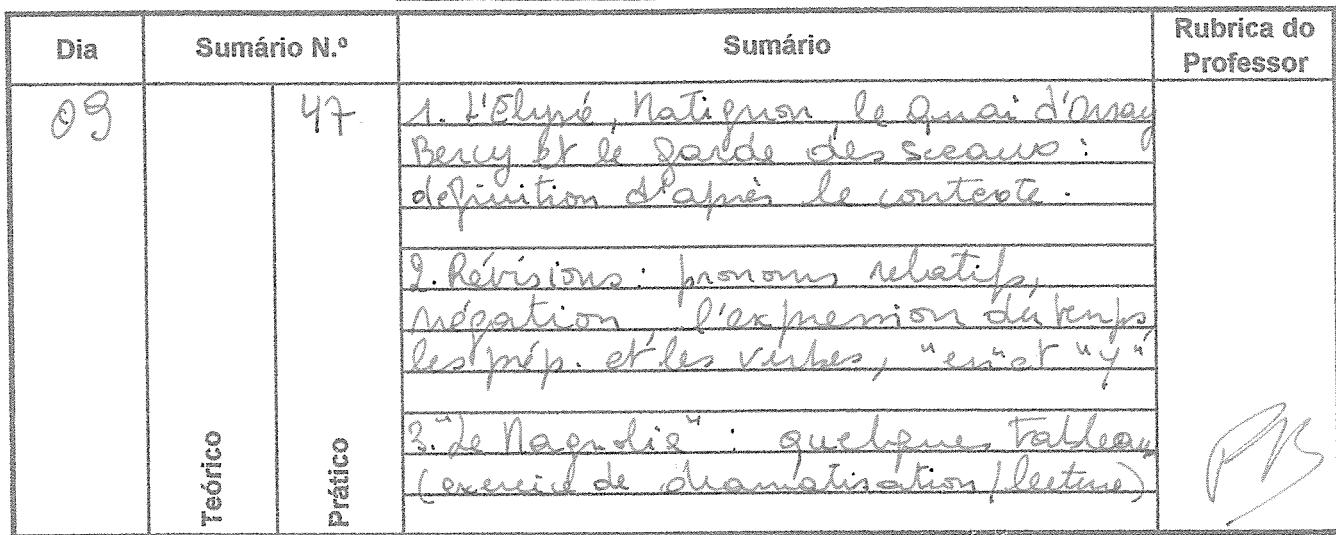 Dia Sumário N.º Sumário Rubrica do Professor
09 47 1. L'Elysé, Matignon, le Quai d'Orsay
Bercy et le garde des sceaux :
définition d'après le contexte.
2. Révisions : pronoms relatifs,
négation, l'expression du temps
les prép. et les verbes, "en" et "y"
3. "Le Magnolia" : quelques tableaux
(exercice de dramatisation / lecture)
Teórico
Prático